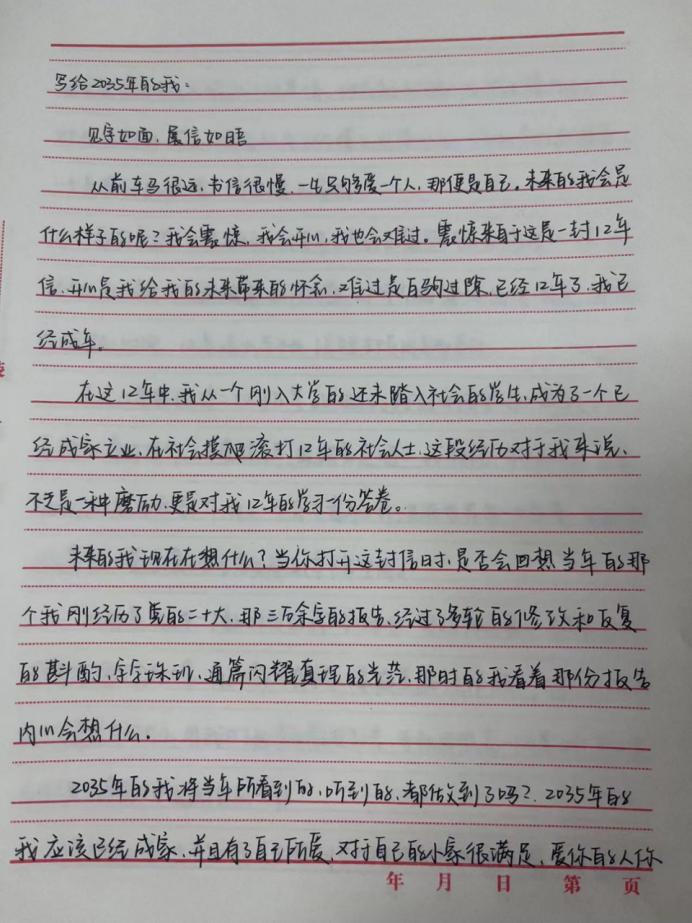 写给2035年的我：
见字如面，展信如晤
从前车马很远，书信很慢，一生只够爱一个人，那便是自己。未来的我会是
什么样子的呢？我会震惊，我会开心，我也会难过。震惊来自于这是一封12年
信，开心是我给我的未来带来的怀念，难过是白驹过隙，已经12年了，我已
经成年。
在这12年中，我从一个刚入大学的还未踏入社会的学生，成为了一个已
经成家立业，在社会摸爬滚打12年的社会人士，这段经历对于我来说，
不是一种磨励，更是对我12年的学习一份答卷。
未来的我现在在想什么？当你打开这封信时，是否会回想当年的那
个我刚经历了党的二十大，那三万余字的报告，经过了多轮的修改和反复
的斟酌，字字珠玑，通篇闪耀真理的光芒，那时的我看着那份报告
内心会想什么。
2035年的我将当年所看到的，听到的，都做到了吗？2035年的
我应该已经成家，并且有了自己所爱，对于自己的小家很满足，爱你的人你
年 月 日 第 页